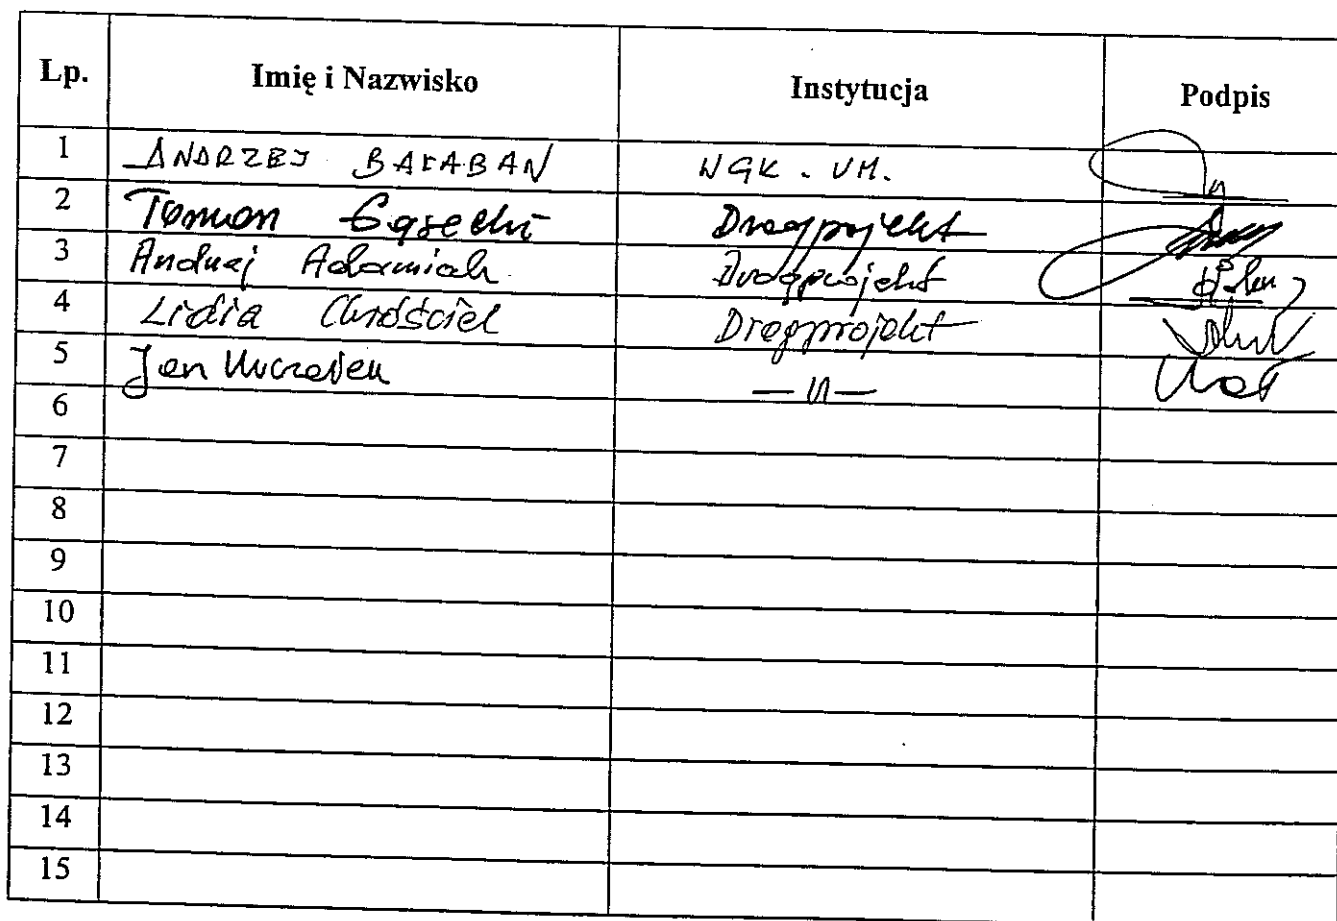 Lp. Imię i Nazwisko Instytucja Podpis
1 ANDRZEJ BAŁABAN WGK. UM.
2 Drogprojekt
3 Andrzej Adamiak Drogprojekt
4 Lidia Chróściel Drogprojekt
5 Jan — 11 —
6
7
8
9
10
11
12
13
14
15